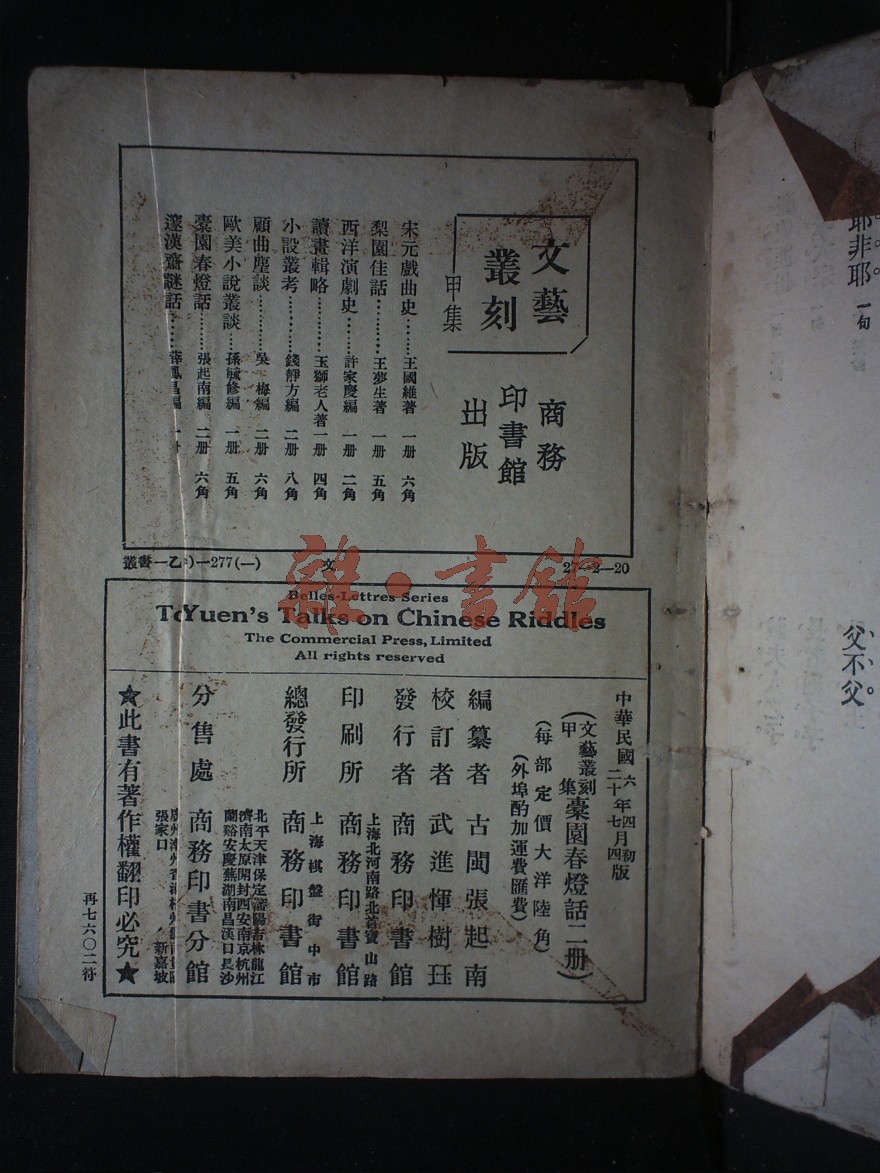 文藝
叢刻
甲集
商務
印書館
出版
宋元戲曲史……王國維著 一册 六角
梨園佳話………王夢生著 一册 五角
西洋演劇史……許家慶編 一册 二角
讀畫輯略………玉獅老人著 一册 四角
小說叢考………錢靜方編 二册 八角
顧曲麈談………吳 梅編 二册 六角
歐美小說叢談…孫毓修編 一册 五角
橐園春燈話……張起南編 二册 六角
邃漢齋謎話……薛鳳昌編 一册
叢書一乙
一277(一)
文
27—2—20
Belles-Lettres Series
Yuen's Talks on Chinese Riddles
The Commercial Press, Limited
All rights reserved
中華民國
六年四月初版
二十七
四
(文藝叢刻甲集)橐園春燈話二册
(每部定價大洋陸角)
(外埠酌加運費匯費)
編纂者 古閩張起南
校訂者 武進惲樹珏
發行者 商務印書館
上海北河南路北首寶山路
印刷所 商務印書館
上海棋盤街中市
總發行所 商務印書館
北平天津保定瀋陽吉林龍江
濟南太原開封西安南京杭州
蘭谿安慶蕪湖南昌漢口長沙
分售處 商務印書分館
廣州潮州香港
張家口 新嘉坡
★此書有著作權翻印必究★
再七六〇二符
耶非耶 一句
父不父
雜·書館